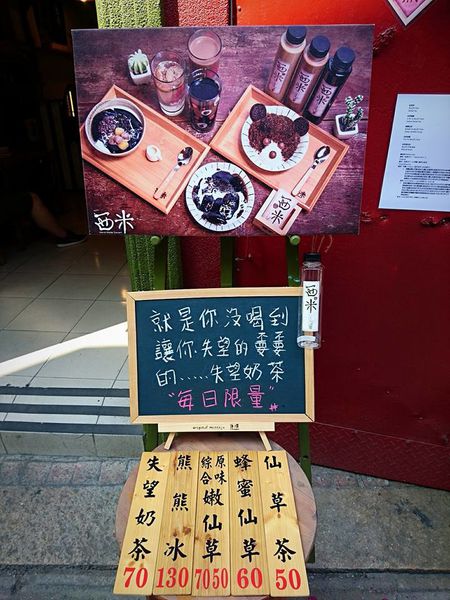 西米
西米
西米
就是你沒喝到
讓你失望的
的......失望奶茶
"每日限量"
失望奶茶 70
熊熊冰 130
綜合 原味 嫩仙草 70 50
蜂蜜仙草 60
仙草茶 50